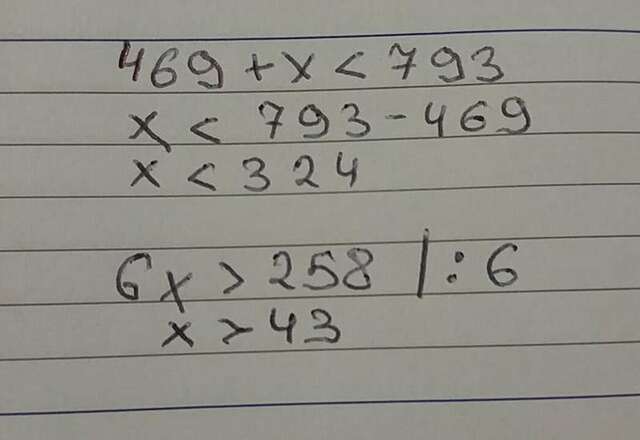 469 + x < 793
x < 793 - 469
x < 324
6x > 258 | : 6
x > 43